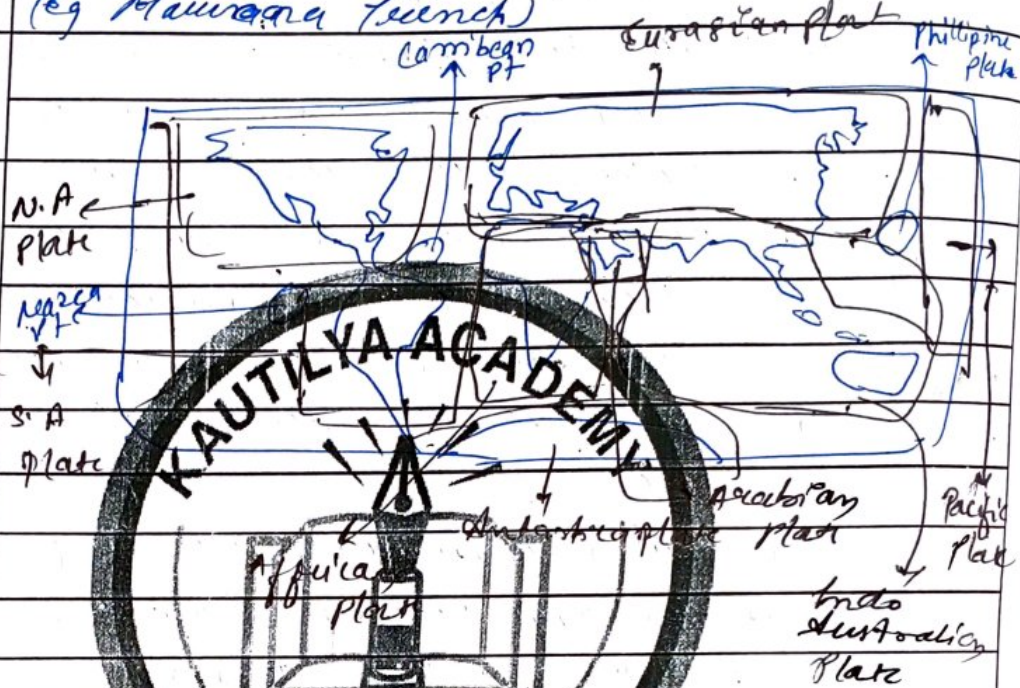 (eg Mariana Trench)
Carribean
pt
Eurasian plat
Phillipine
plate
N.A
plate
Nazca
pt
S.A
plate
KAUTILYA ACADEMY
Arabian
plate
Antarctic plate
Pacific
plate
Affrica
plate
Indo
Australian
plate